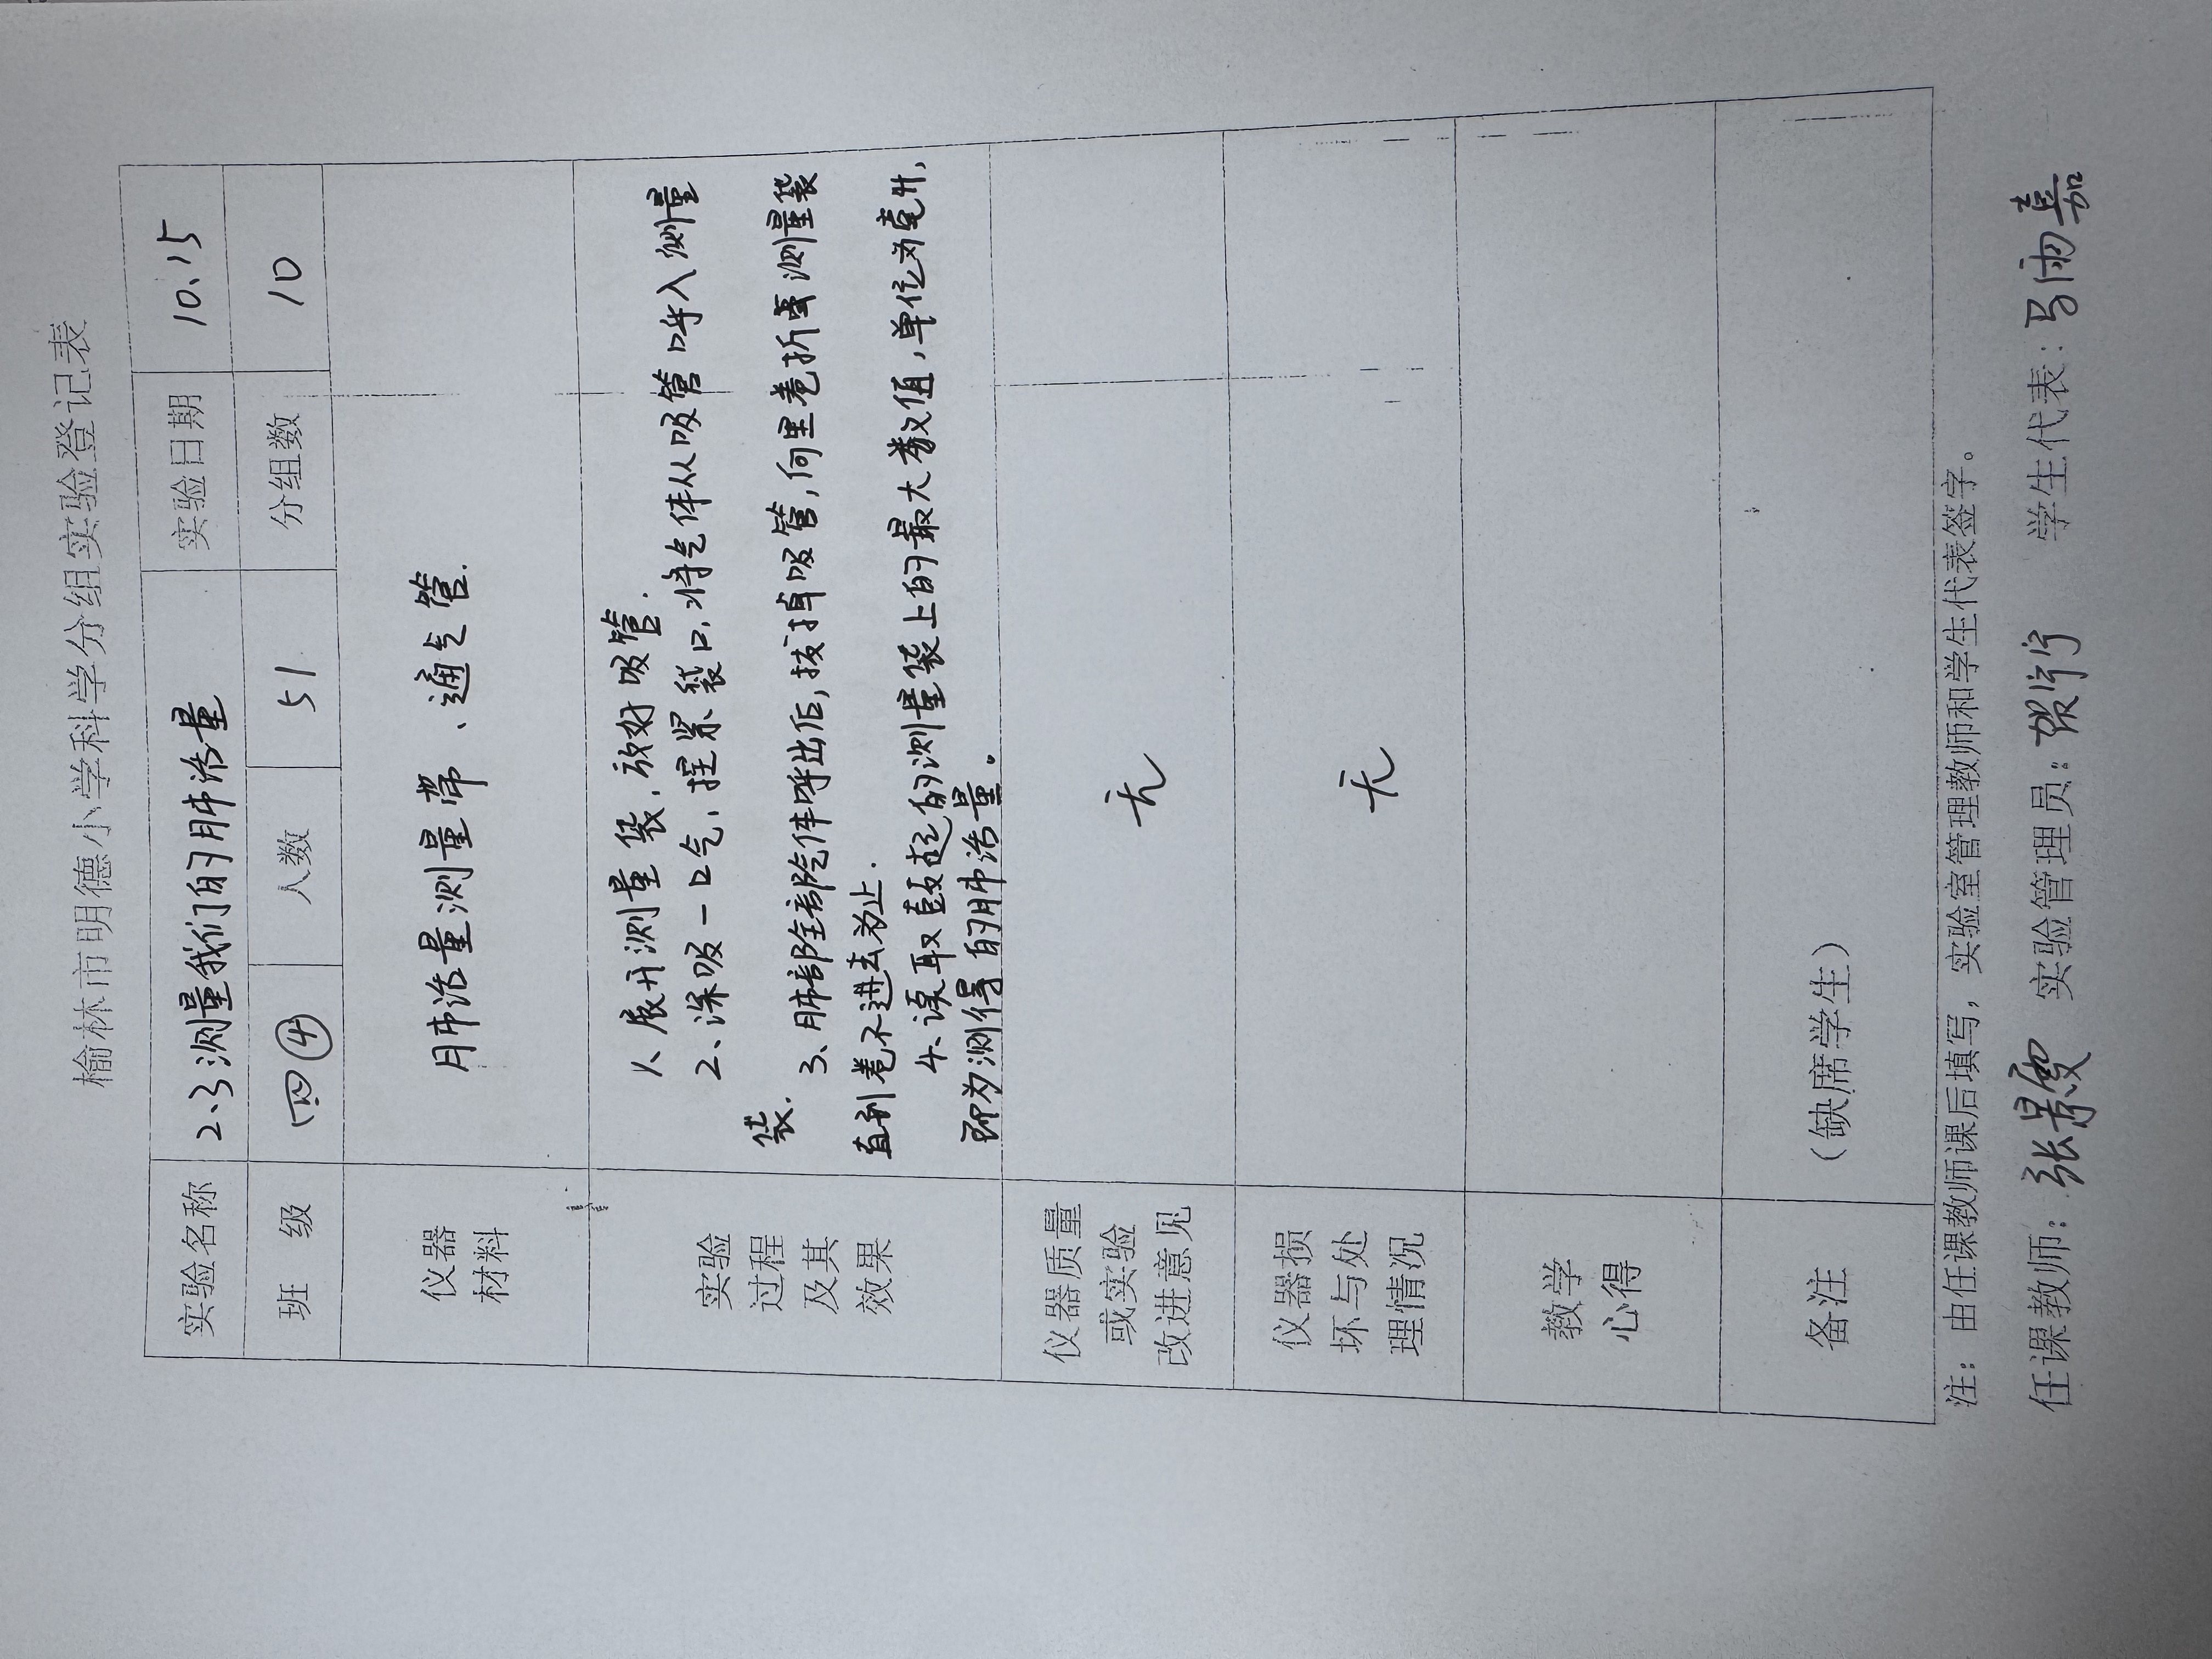 榆林市明德小学科学分组实验登记表
实验名称 2.3测量我们的肺活量 实验日期 10.15
班 级 四④ 人数 51 分组数 10
仪器
材料
肺活量测量带、通气管.
实验
过程
及其
效果
1、展开测量袋,放好吸管.
2、深吸一口气,捏紧袋口,将气体从吸管呼入测量
袋.
3、肺部全部气体呼出后,拔掉吸管,向里卷折叠测量袋
直到卷不进去为止.
4、读取鼓起的测量袋上的最大数值,单位为毫升,
即为测得的肺活量。
仪器质量
或实验
改进意见
无
仪器损
坏与处
理情况
无
教学
心得
备注
(缺席学生)
注:由任课教师课后填写,实验室管理教师和学生代表签字。
任课教师:张景雯 实验管理员:贺宁宁 学生代表:马雨嘉